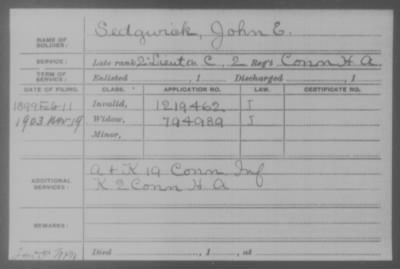 NAME OF SOLDIER: Sedgwick, John E.
SERVICE: Late rank 2" Lieut Co C, 2 Reg't Conn H A
TERM OF SERVICE: Enlisted , 1 Discharged , 1
DATE OF FILING. CLASS. APPLICATION NO. LAW. CERTIFICATE NO.
1899 Feb 11 Invalid, 1219462 J
1903 Nov 19 Widow, 794989 J
Minor,
ADDITIONAL SERVICES: A & K 19 Conn Inf
K 2 Conn H A
REMARKS:
Died , 1 , at